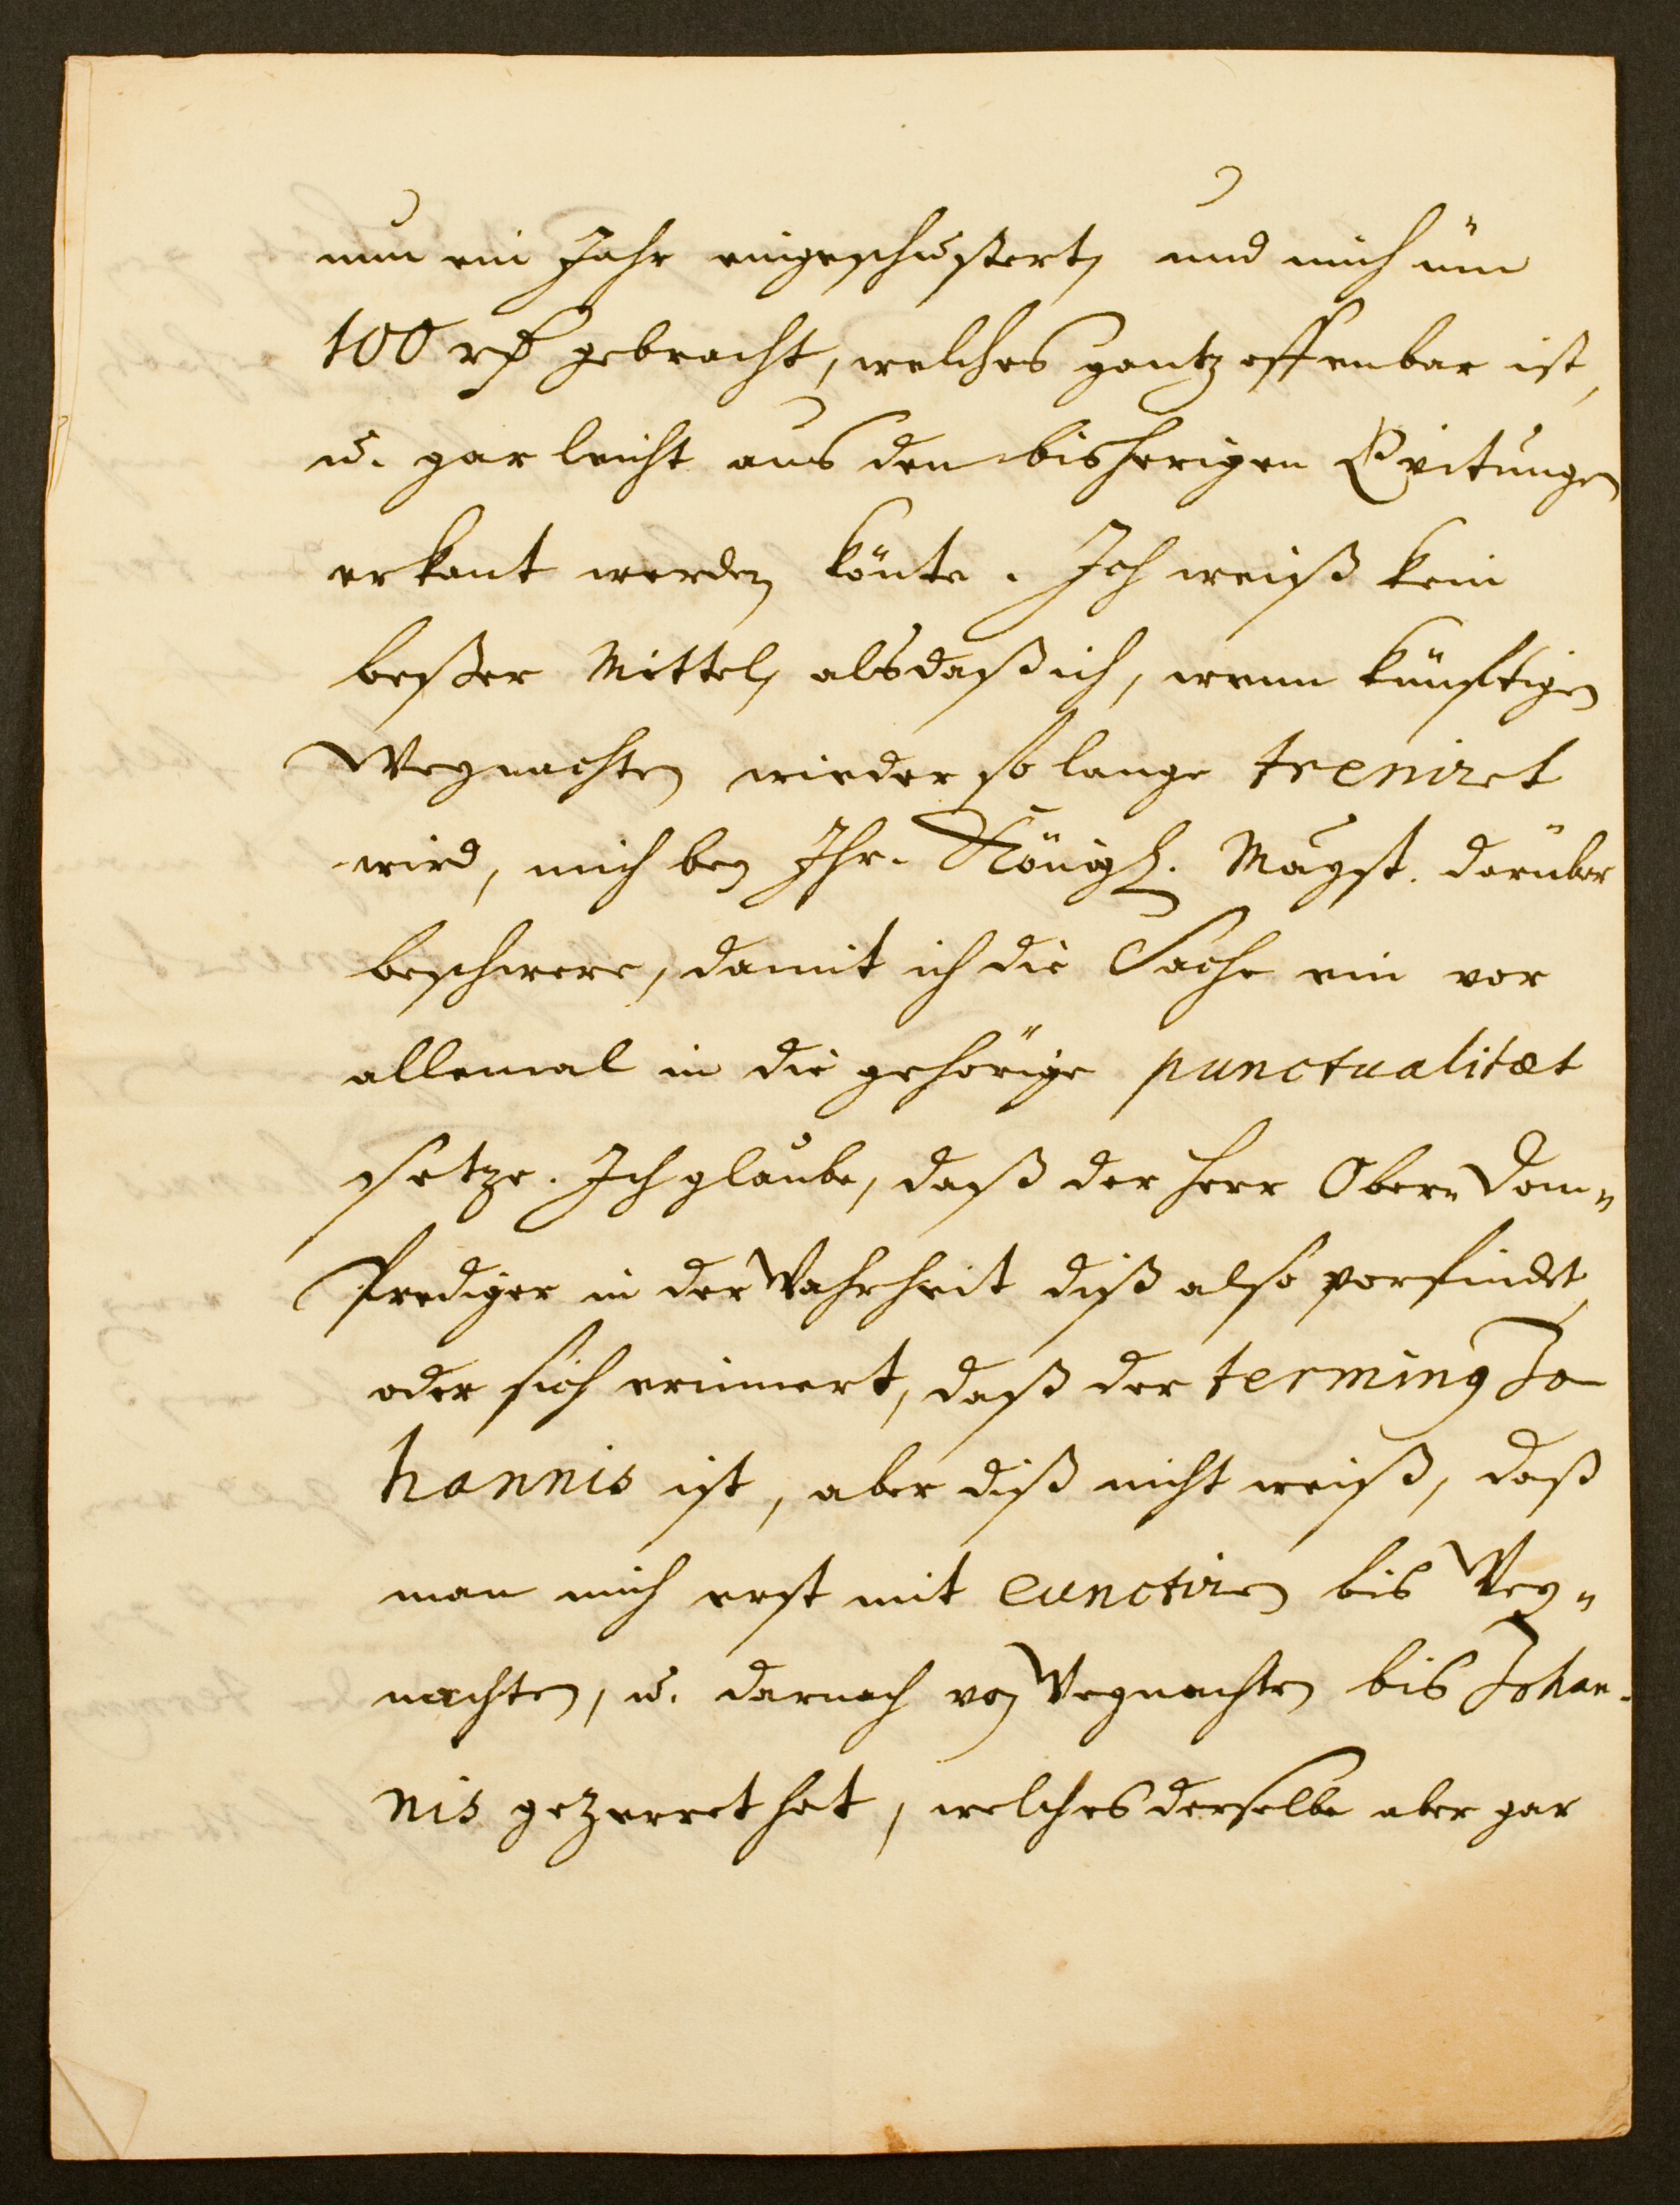 nun ein Jahr eingeschustert, und mich üm
100 rth gebracht, welches gantz offenbar ist,
u. gar leicht aus den bisherigen Qvitungen
erkant werden könte. Ich weiß kein
beßer Mittel, als daß ich, wenn künftigen
Weynachten wieder so lange treniret
wird, mich bey Ihr. Königl. Mayst. darüber
beschwere, damit ich die Sache ein vor
allemal in die gehörige punctualitæt
setze. Ich glaube, daß der Herr Ober- Dom-
Prediger in der Wahrheit diß also vorfindet,
oder sich erinnert, daß der terminus Jo
hannis ist, aber diß nicht weiß, daß
man mich erst mit cunctiren bis Wey-
nachten, u. darnach von Weynachten bis Johan-
nis gezerret hat, welches derselbe aber gar